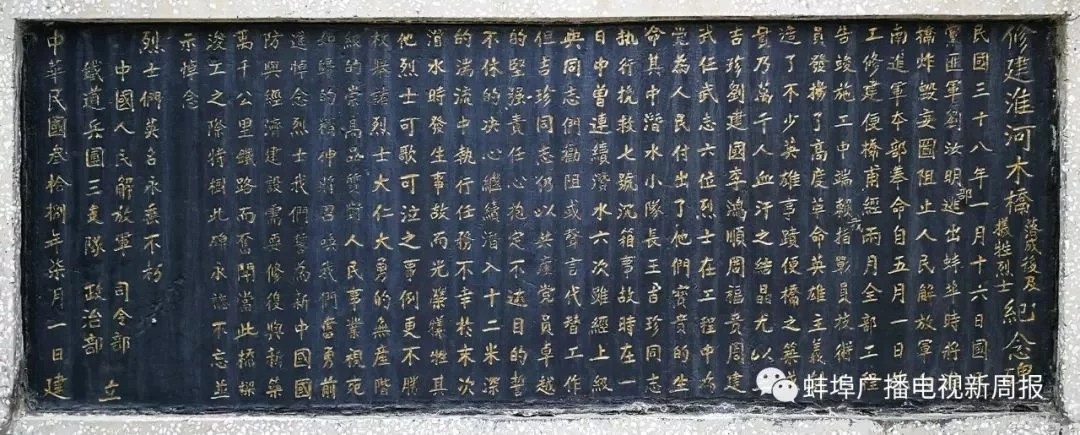 修建淮河木橋落成後及犧牲烈士紀念碑
民國三十八年一月十六日國
黨匪軍劉汝明逃出蚌埠時將淮
橋炸毀妄圖阻止人民解放軍
南進軍本部奉命自五月一日
工修建便橋甫經兩月全部工程
告竣施工中端賴指戰員技術
員發揚了高度革命英雄主義
造了不少英雄事蹟便橋之築
實乃萬千人血汗之結晶尤以
吉珍劉建國李鴻順周福貴周建
武任武志六位烈士在工程中為
黨為人民付出了他們寶貴的生
命其中潛水小隊長王吉珍同志
執行挽救七號沉箱事故時在一
日中曾連續潛水六次雖經上級
與同志們勸阻或聲言代替工作
但吉珍同志仍以共產党員卓越
的堅強責任心抱定不達目的誓
不休的决心繼續潛入十二米深
的湍流中執行任務不幸於末次
潛水時發生事故而光榮犧牲其
他烈士可歌可泣之事例更不勝
枚舉諸烈士大仁大勇的無產階
級的崇高品質對人民事業視死
如歸的精神將召喚我們奮勇前
進悼念烈士我們誓為新中國國
防與經濟建設需要修復與新築
萬千公里鐵路而奮鬥當此橋樑
竣工之際特樹此碑永誌不忘並
示悼念
烈士們英名永垂不朽
中國人民解放軍 司令部
鐵道兵團三支隊 政治部 立
中華民國叁拾捌年柒月一日建
蚌埠广播电视新周报